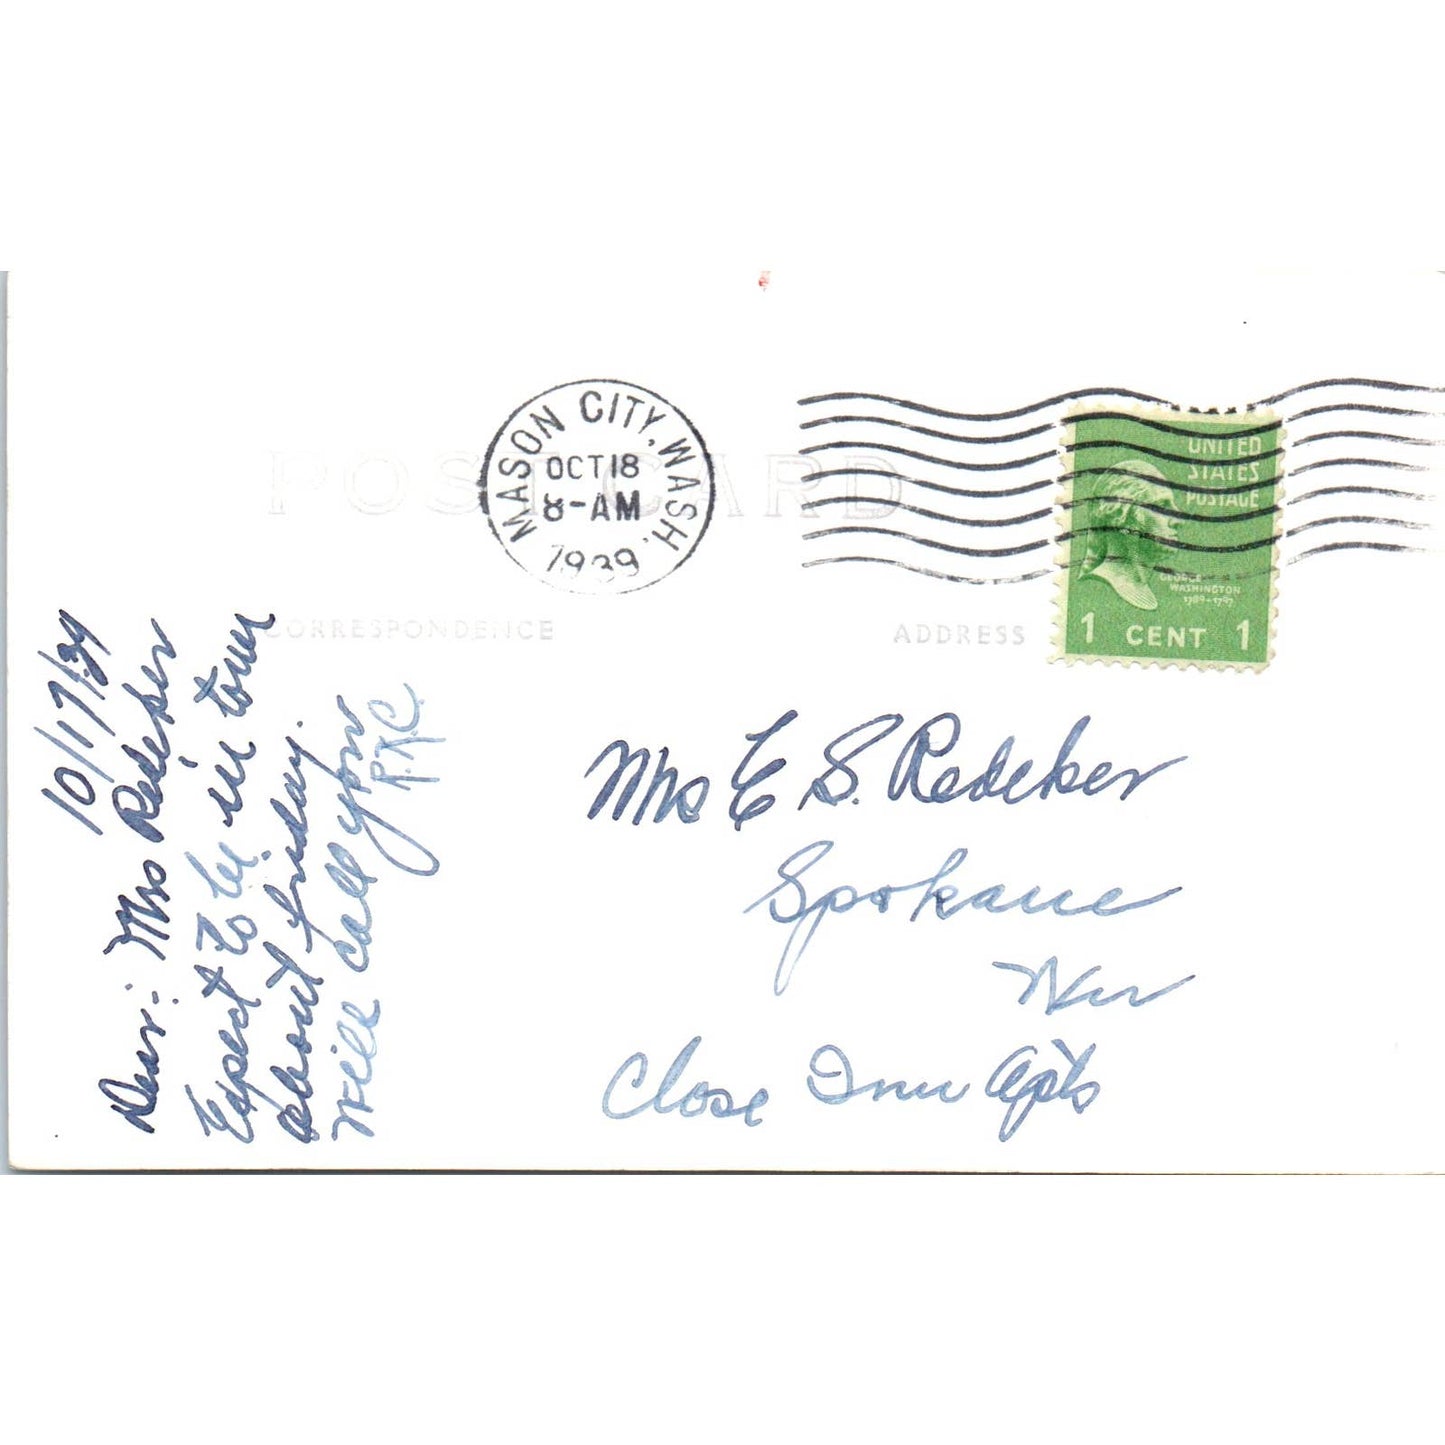 POST CARD
MASON CITY, WASH.
OCT 18
8-AM
1939
UNITED
STATES
POSTAGE
GEORGE
WASHINGTON
1789-1797
1 CENT 1
CORRESPONDENCE
ADDRESS
10/17/39
Dear: Mrs Redeker
Expect to be in town
about friday.
Will call you
Mrs E S. Redeker
Spokane
Wn
Close Inn Apts